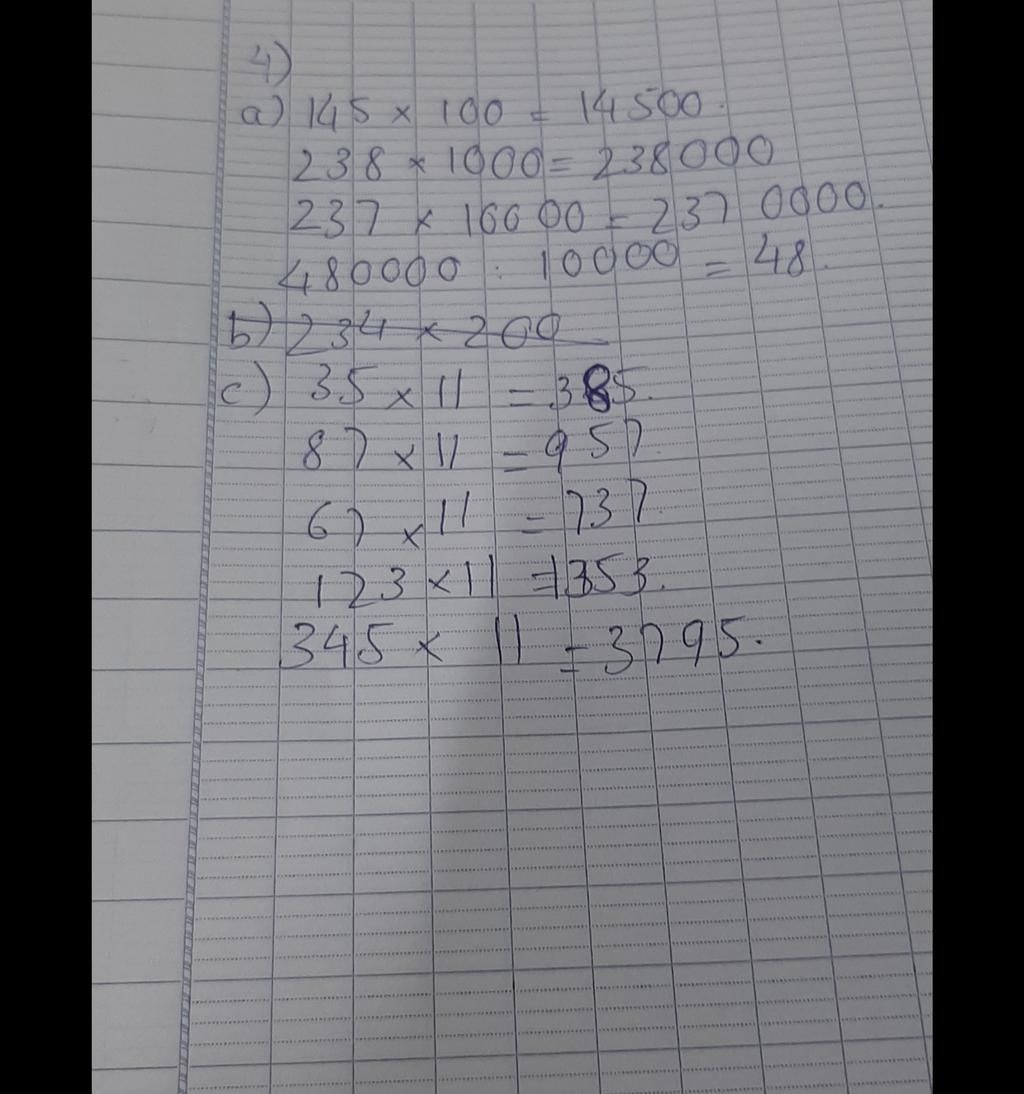 4)
a) 145 × 100 = 14500.
238 × 1000 = 238000
237 × 10000 = 2370000.
480000 : 10000 = 48.
b) 234 × 200
c) 35 × 11 = 385.
87 × 11 = 957.
67 × 11 = 737.
123 × 11 = 1353.
345 × 11 = 3795.